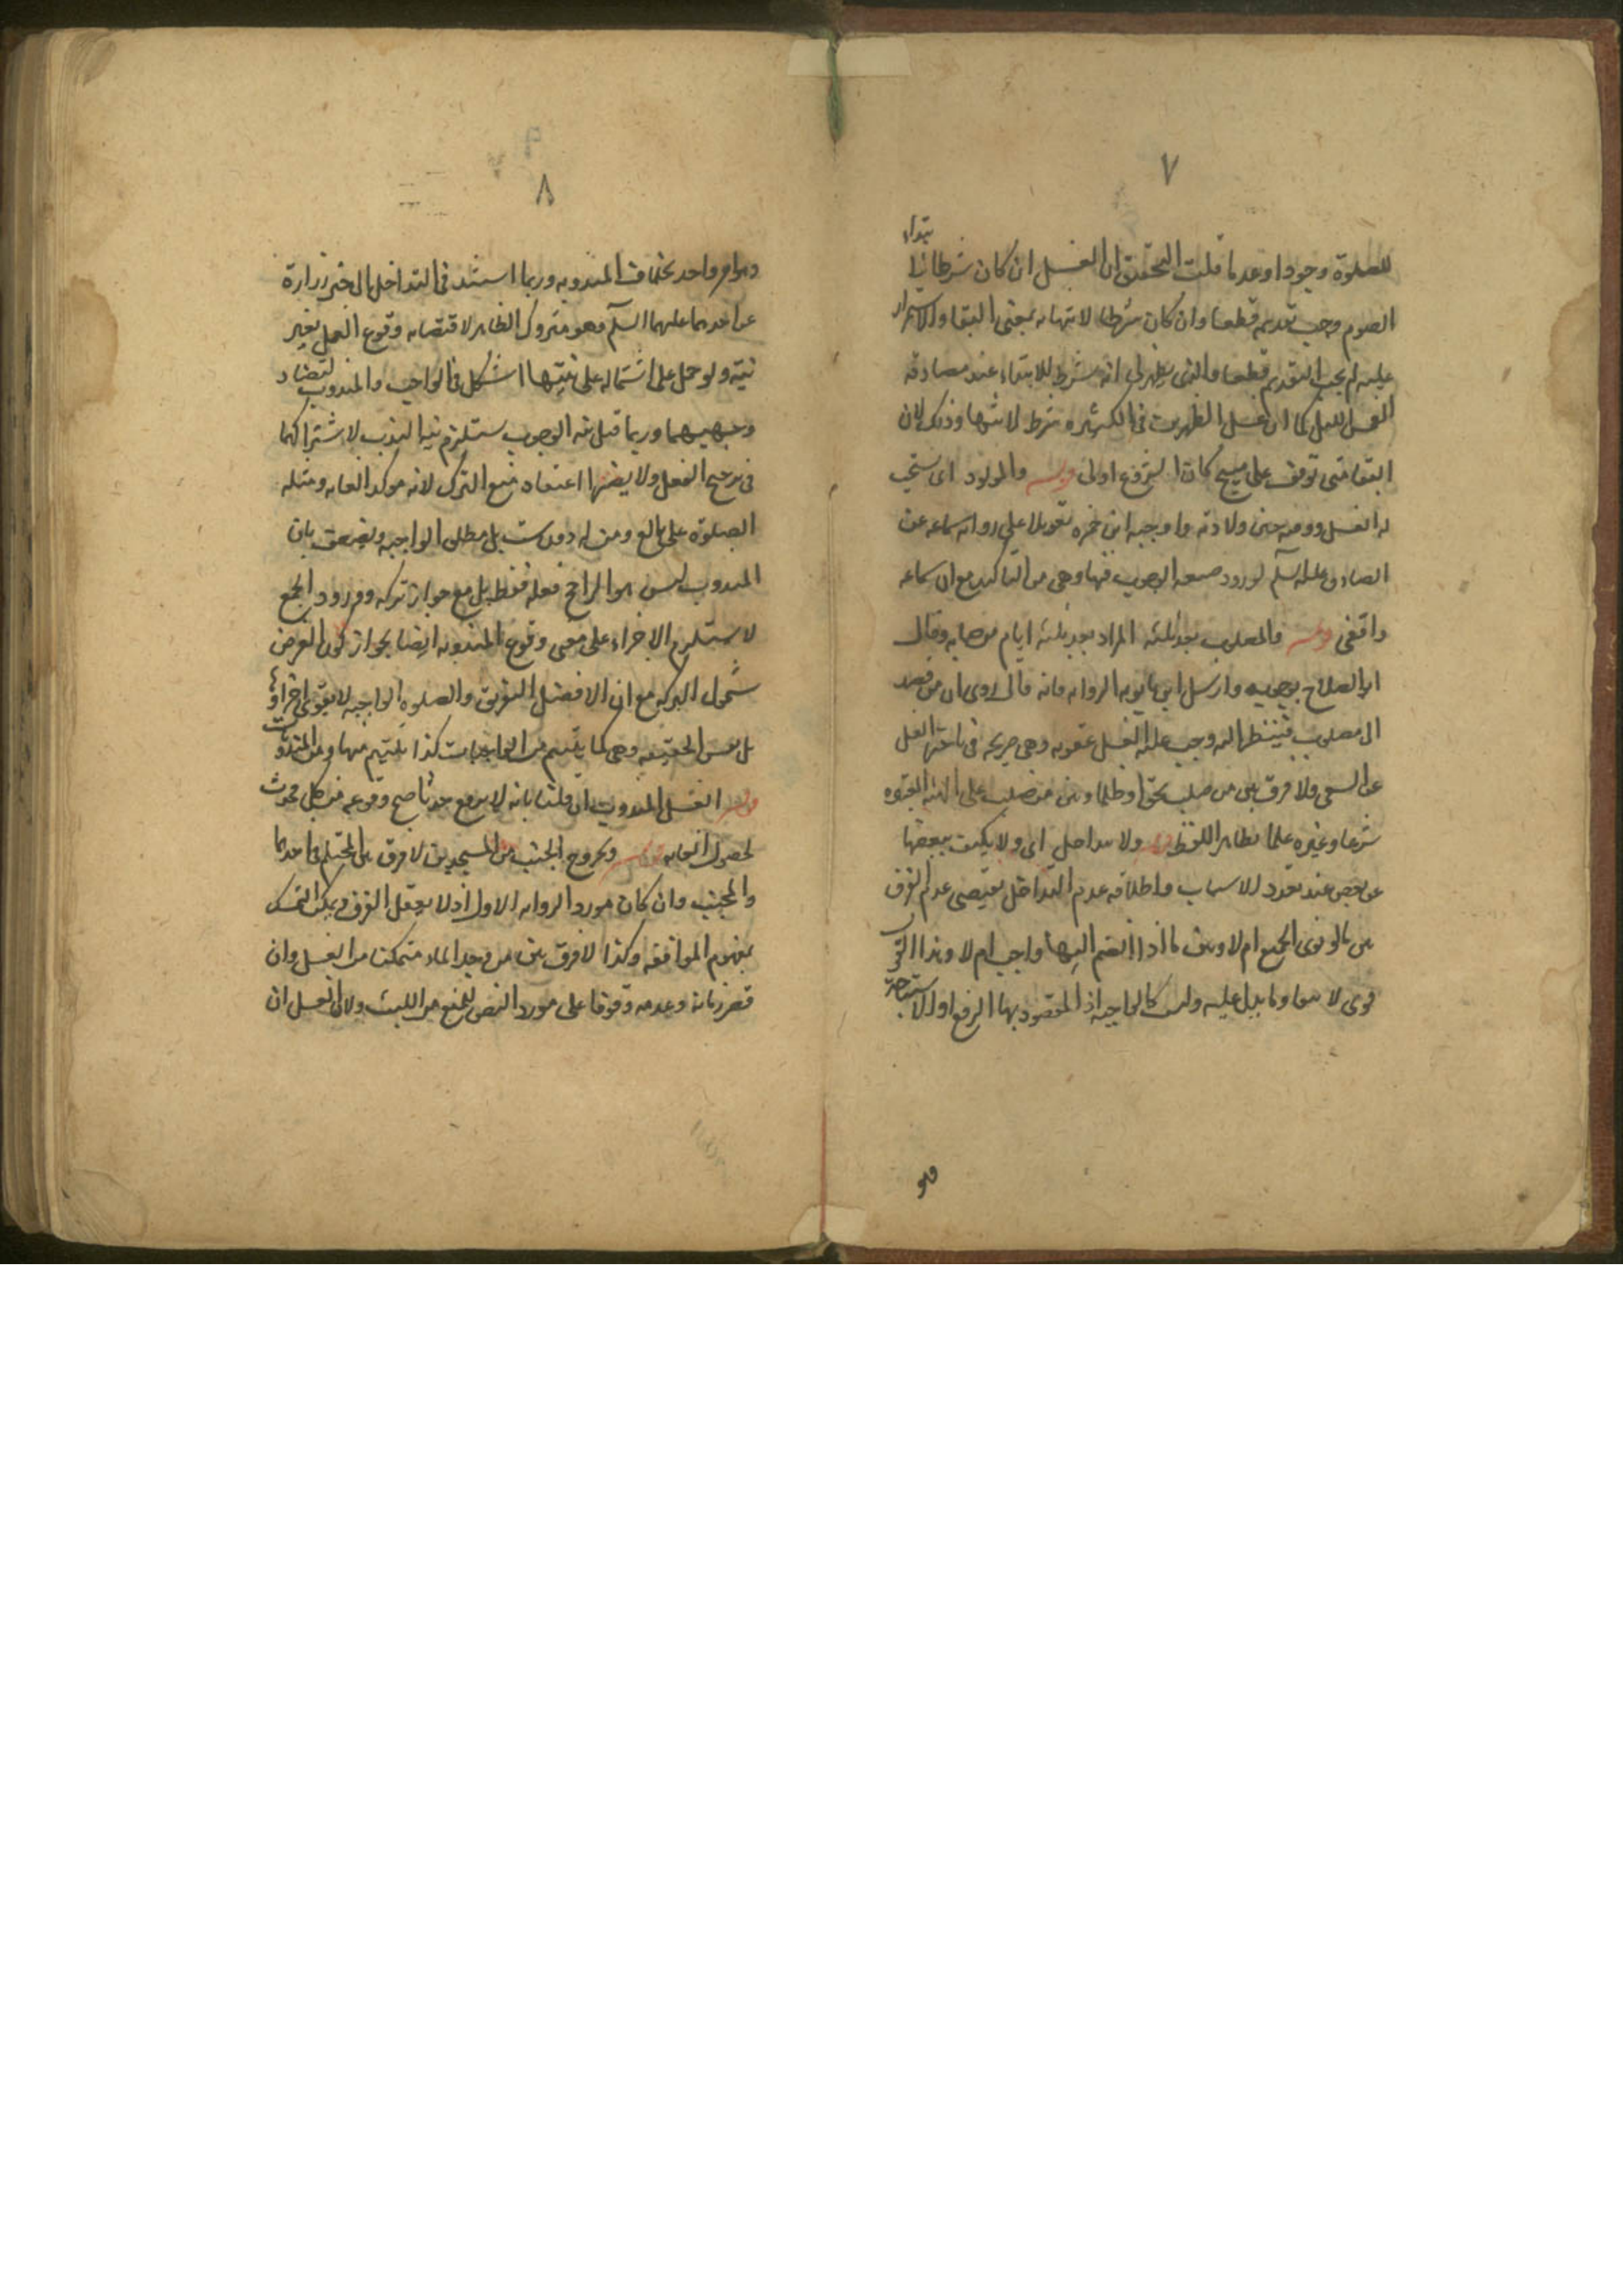 ٧
للصلوة وجودا وعدما قلت التحقيق ان الغسل ان كان شرطا لابتداء
الصوم وجب تقديمه قطعا وان كان شرطا لانتهائه بمعنى البقاء والاستمرار
عليه لم يجب التقديم قطعا والذى يظهر لى انه شرط للابتداء عند مصادفة
الغسل لليل كما ان غسل الظهرين فى الكثيرة شرط لانتهائها وذلك لان
البقاء متى توقف على مبيح كان الشروع اولى قوله والمولود اى يستحب
له الغسل ووقته حين ولادته واوجبه ابن حمزه تعويلا على رواية سماعه عن
الصادق عليه السلم لورود صيغه الوجوب فيها وهى من التاكيد مع ان سماعه
واقفى قوله والمصلوب بعد ثلثه المراد بعد ثلثه ايام من صلبه وقال
ابو الصلاح بوجوبه وارسل ابن بابويه الروايه فانه قال روى ان من قصد
الى مصلوب فينظر اليه وجب عليه الغسل عقوبه وهى صريحه فى تاخير الغسل
عن السعى ولا فرق بين من صلب بحق او ظلما وبين من صلب على الهيئه المعتبره
شرعا وغيره عملا بظاهر اللفظ قوله ولا تتداخل اى ولا يكتفى ببعضها
عن بعض عند تعدد الاسباب واطلاقه عدم التداخل يقتضى عدم الفرق
بين ما لو نوى الجميع ام لا وبين ما اذا انضم اليها واجب ام لا وهذا القول
قوى لا سيما وما يدل عليه وليست كالواجبه اذ المقصود بها الرفع او الاستباحة
وهو
٨
وهو امر واحد بخلاف المندوبه وربما استند فى التداخل الى خبر زرارة
عن احدهما عليهما السلم وهو متروك الظاهر لاقتضائه وقوع العمل بغير
نية ولو حمل على اشتماله على نيتها اشكل فى الواجب والمندوب لتضاد
وجهيهما وربما قيل نية الوجوب يستلزم نية الندب لاشتراكهما
فى ترجيح الفعل ولا يضرها اعتقاد منع الترك لانه موكد للغايه ومثله
الصلوة على بالغ ومن له دون ست بل مطلق الواجبه ويضعف بان
المندوب ليس هو الراجح فعله فقط بل مع جواز تركه وورود الجمع
لا يستلزم الاجزاء على معنى وقوع المندوبه ايضا بجواز كون الغرض
شمول البركه مع ان الافضل التفريق والصلوه الواجبه لا يقوى اجزاؤها
بل نفس الحقيقه وهى كما يلتئم من الواجبات كذا يلتئم منها ومن المندوبات
قوله الغسل المندوب ان قلنا بانه لا يرفع حدثا صح وقوعه من كل محدث
لحصول الغايه قوله وخروج الجنب من المسجدين لا فرق بين المحتلم فى احدهما
والمجنب وان كان مورد الروايه الاول اذ لا يعقل الفرق ويمكن التمسك
بمفهوم الموافقه وكذا لا فرق بين من وجد الماء متمكنا من الغسل وان
قصر زمانه وعدمه وقوفا على مورد النص للمنع من اللبث ولان الغسل ان